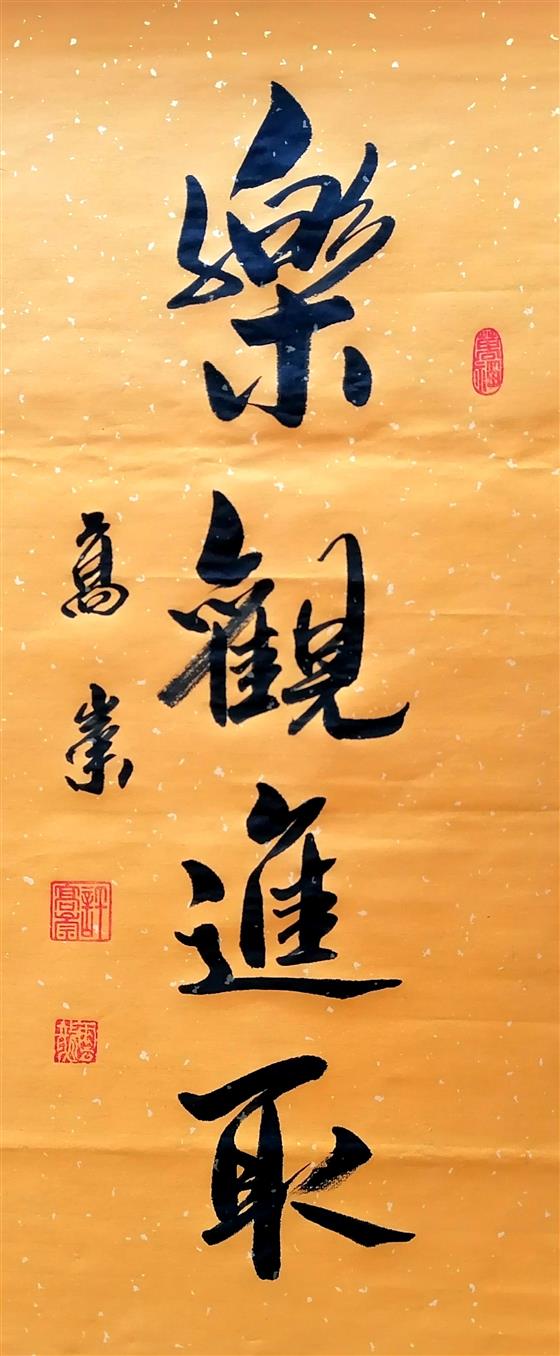 樂觀進取
高